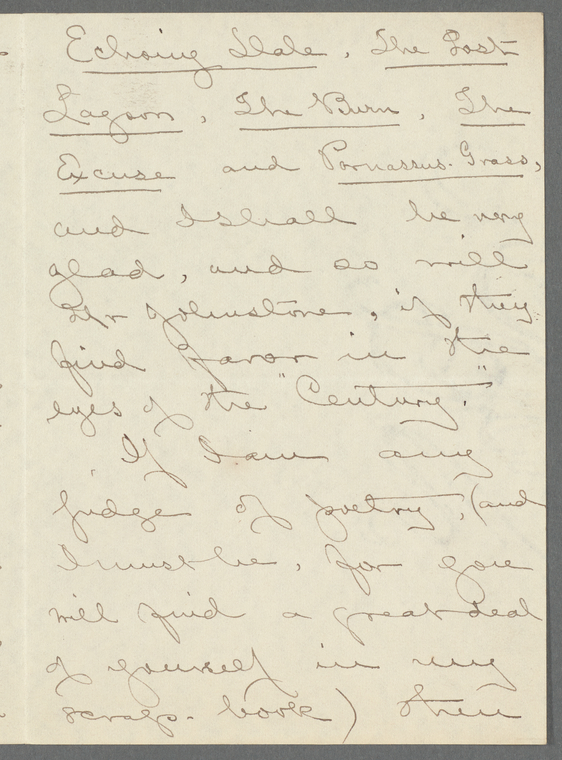 Echoing Dale, The Lost
Lagoon, The Burn, The
Excuse and Parnassus-Grass,
and I shall be very
glad, and so will
Mr Johnstone, if they
find favor in the
eyes of the "Century."
If I am any
judge of poetry, (and
I must be, for you
will find a great deal
of yourself in my
scrap-book)